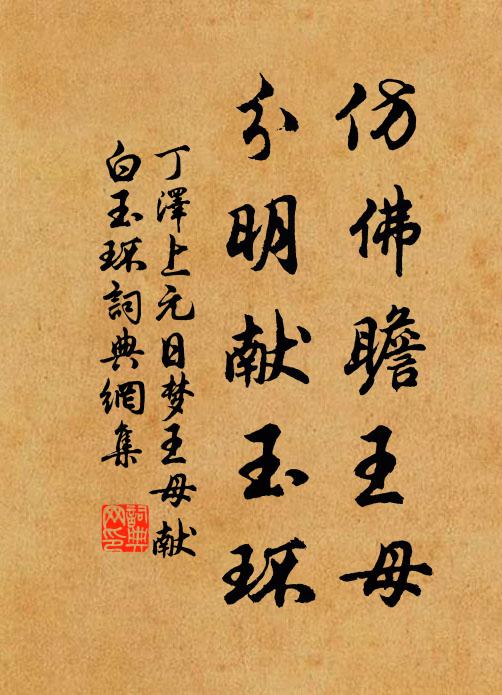 仿佛瞻王母
分明献玉环
丁澤上元日梦王母献
白玉环詞典網集
詞典网印